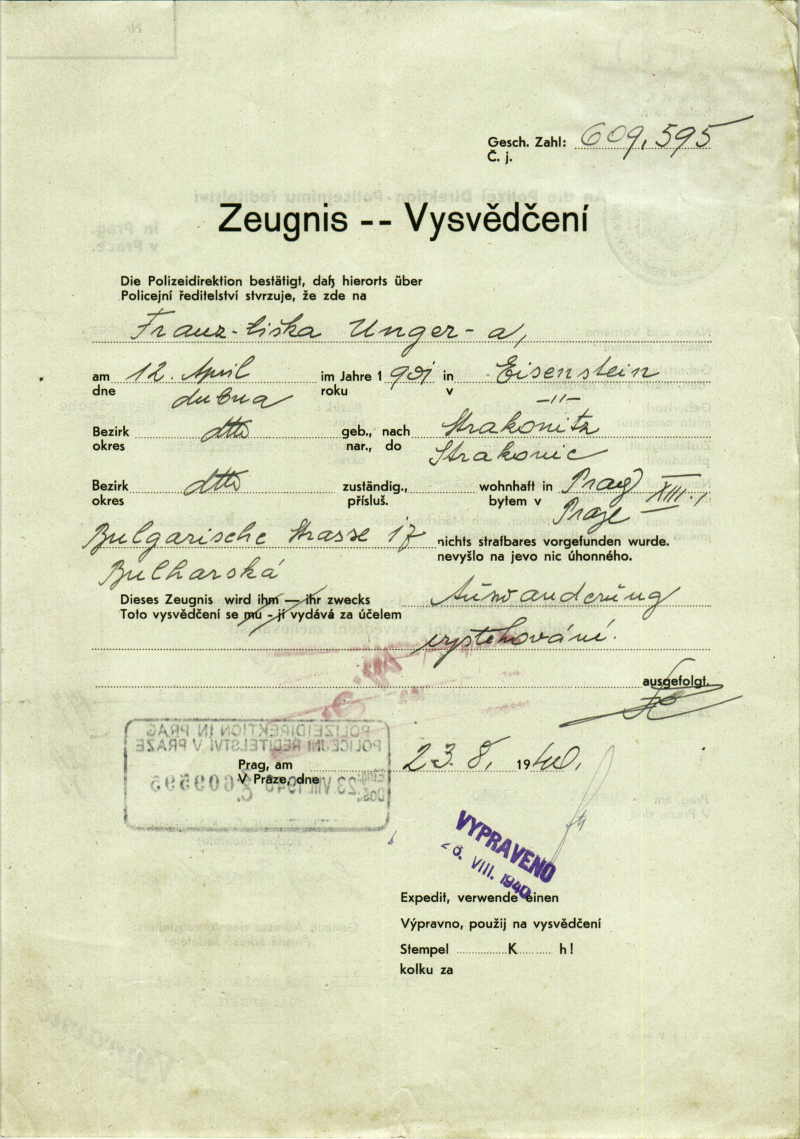 Gesch. Zahl: 609,595
Č. j.
Zeugnis -- Vysvědčení
Die Polizeidirektion bestätigt, daß hierorts über
Policejní ředitelství stvrzuje, že zde na
Franz-tiška Unger-a,
am 12. April im Jahre 1901 in Eisenstein
dne dubna roku v -"-
Bezirk dtto geb., nach Strakonitz
okres nar., do Strakonic
Bezirk dtto zuständig., wohnhaft in Prag XIII.,
okres přísluš. bytem v Praze
Bulgarische Strasse 17 nichts strafbares vorgefunden wurde.
nevyšlo na jevo nic úhonného.
Bulharská
Dieses Zeugnis wird ihm — ihr zwecks Auswanderung
Toto vysvědčení se mu - jí vydává za účelem
vystěhování.
ausgefolgt.
POLIZEIDIREKTION IN PRAG
POLICEJNÍ ŘEDITELSTVÍ V PRAZE
23 VIII. 1940 609595
Prag, am 23. 8. 1940.
V Praze, dne
VYPRAVENO
VIII. 1940
Expedit, verwende einen
Výpravno, použij na vysvědčení
Stempel K h!
kolku za